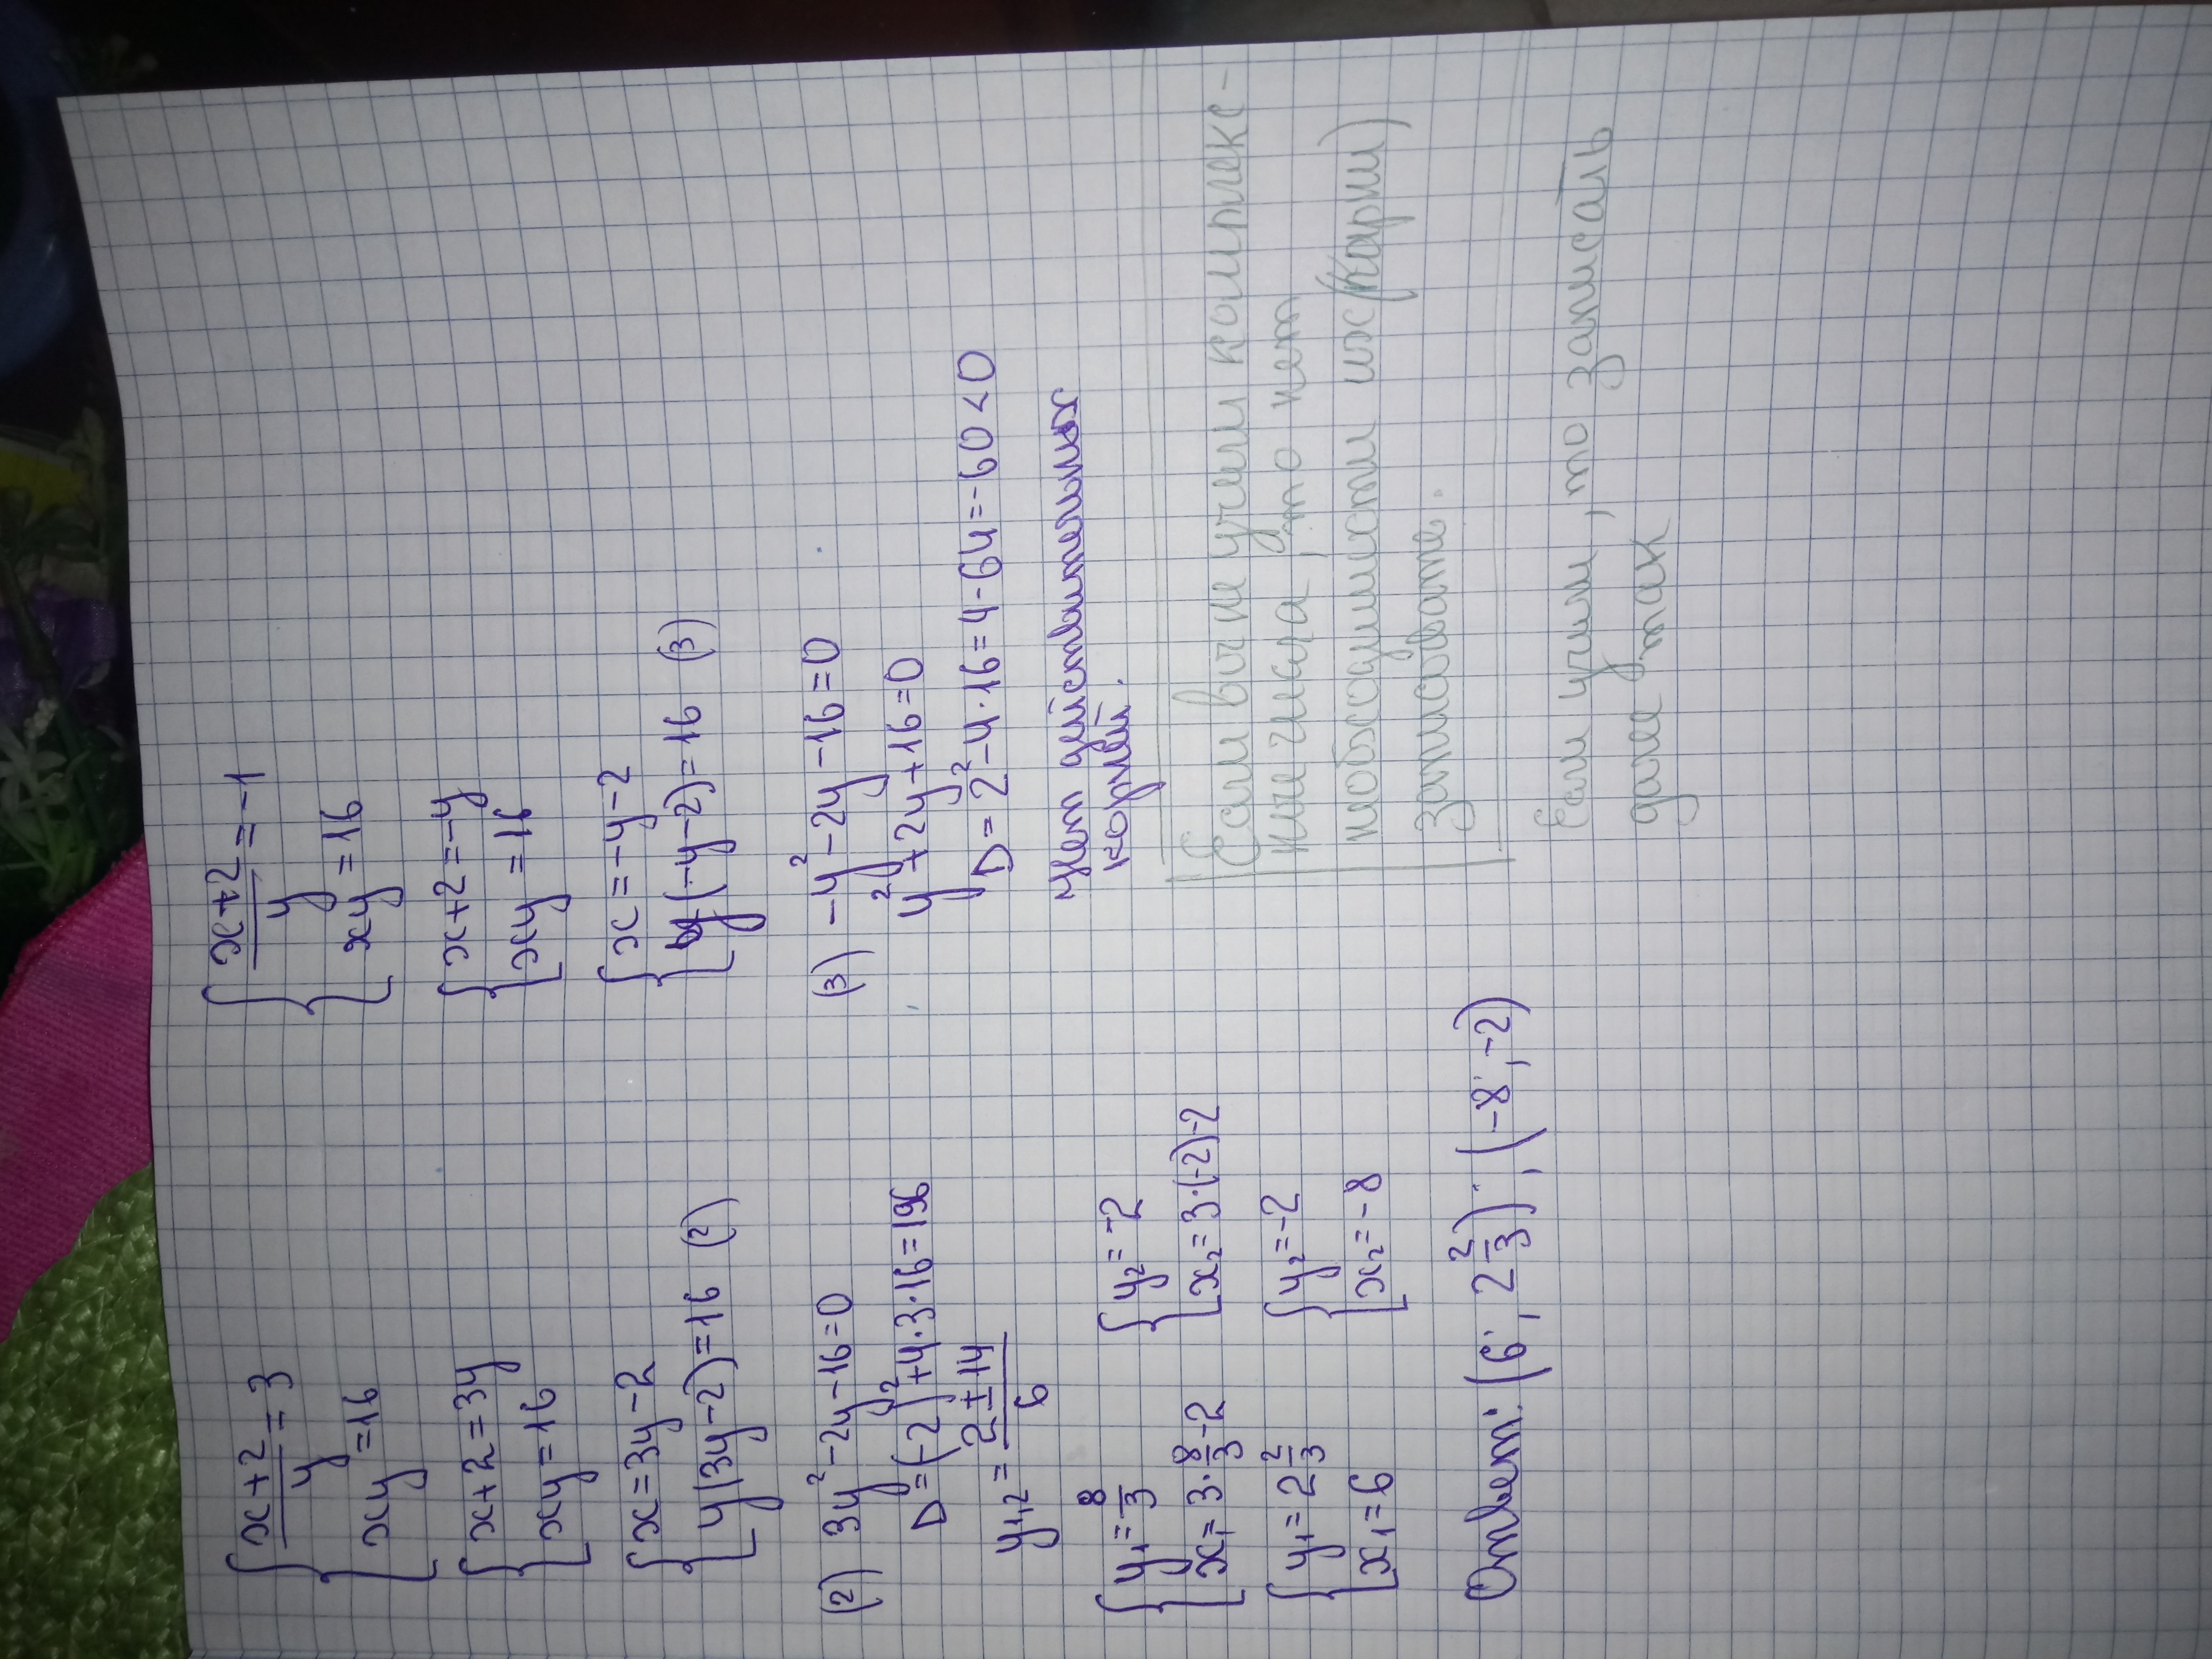 { (x+2)/y = 3
xy = 16
{ x+2 = 3y
xy = 16
{ x = 3y-2
y(3y-2) = 16 (2)
(2) 3y² - 2y - 16 = 0
D = (-2)² + 4·3·16 = 196
y₁,₂ = (2 ± 14)/6
{ y₁ = 8/3
x₁ = 3·8/3 - 2
{ y₁ = 2 2/3
x₁ = 6
{ y₂ = -2
x₂ = 3·(-2)-2
{ y₂ = -2
x₂ = -8
Ответ: (6; 2 2/3); (-8; -2)
{ (x+2)/y = -1
xy = 16
{ x+2 = -y
xy = 16
{ x = -y-2
y(-y-2) = 16 (3)
(3) -y² - 2y - 16 = 0
y² + 2y + 16 = 0
D = 2² - 4·16 = 4 - 64 = -60 < 0
Нет действительных
корней.
Если вы не учили комплекс-
ные числа, то нет
необходимости их (корни)
записывать.
Если учили, то записать
далее так